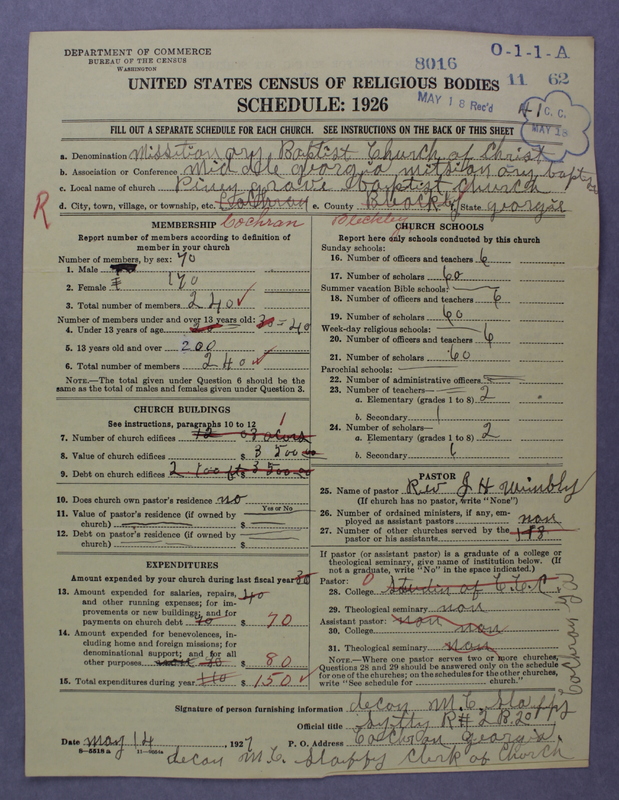 DEPARTMENT OF COMMERCE
BUREAU OF THE CENSUS
WASHINGTON
8016
O-1-1-A
11 62
UNITED STATES CENSUS OF RELIGIOUS BODIES
SCHEDULE: 1926
MAY 18 Rec'd
C. C.
MAY 18
FILL OUT A SEPARATE SCHEDULE FOR EACH CHURCH. SEE INSTRUCTIONS ON THE BACK OF THIS SHEET
a. Denomination Missitionary Baptist Church of Christ
b. Association or Conference Middle georgia mission ary baptist
c. Local name of church Piney grave baptist Church
R
d. City, town, village, or township, etc. Cochran e. County Bleckley f. State georgie
Cochran Bleckley
MEMBERSHIP
Report number of members according to definition of
member in your church
Number of members, by sex: 70
1. Male
2. Female 170
3. Total number of members 240
Number of members under and over 13 years old:
4. Under 13 years of age 40
5. 13 years old and over 200
6. Total number of members 240
NOTE.—The total given under Question 6 should be the
same as the total of males and females given under Question 3.
CHURCH BUILDINGS
See instructions, paragraphs 10 to 12
7. Number of church edifices 1
8. Value of church edifices $ 3 500 00
9. Debt on church edifices $ 3500.00
10. Does church own pastor's residence? no
Yes or No
11. Value of pastor's residence (if owned by
church) $
12. Debt on pastor's residence (if owned by
church) $
EXPENDITURES
Amount expended by your church during last fiscal year 30
13. Amount expended for salaries, repairs, 40
and other running expense; for im-
provements or new buildings; and for
payments on church debt $ 70
14. Amount expended for benevolences, in-
cluding home and foreign missions; for
denominational support; and for all
other purposes $ 80
15. Total expenditures during year 110 $ 150
CHURCH SCHOOLS
Report here only schools conducted by this church
Sunday schools:
16. Number of officers and teachers 6
17. Number of scholars 60
Summer vacation Bible schools:
18. Number of officers and teachers 6
19. Number of scholars 60
Week-day religious schools:
20. Number of officers and teachers 6
21. Number of scholars 60
Parochial schools:
22. Number of administrative officers
23. Number of teachers—
a. Elementary (grades 1 to 8) 2
b. Secondary 1
24. Number of scholars—
a. Elementary (grades 1 to 8) 2
b. Secondary
PASTOR
25. Name of pastor Rev J H Wimbly
(If church has no pastor, write "None")
26. Number of ordained ministers, if any, em-
ployed as assistant pastors non
27. Number of other churches served by the
pastor or his assistants
If pastor (or assistant pastor) is a graduate of a college or
theological seminary, give name of institution below. (If
not a graduate, write "No" in the space indicated.)
Pastor: 0
28. College
29. Theological seminary non
Assistant pastor: non
30. College non
31. Theological seminary non
NOTE.—Where one pastor serves two or more churches,
Questions 28 and 29 should be answered only on the schedule
for one of the churches; on the schedules for the other churches,
write "See schedule for church."
Signature of person furnishing information decon M. C. Slappy
Cochran ga
Official title R# 2 B. 201
Date may 14, 1927 P. O. Address Cochran georgia
8—5518 a
decon M. C. Slappy Clerk of Church